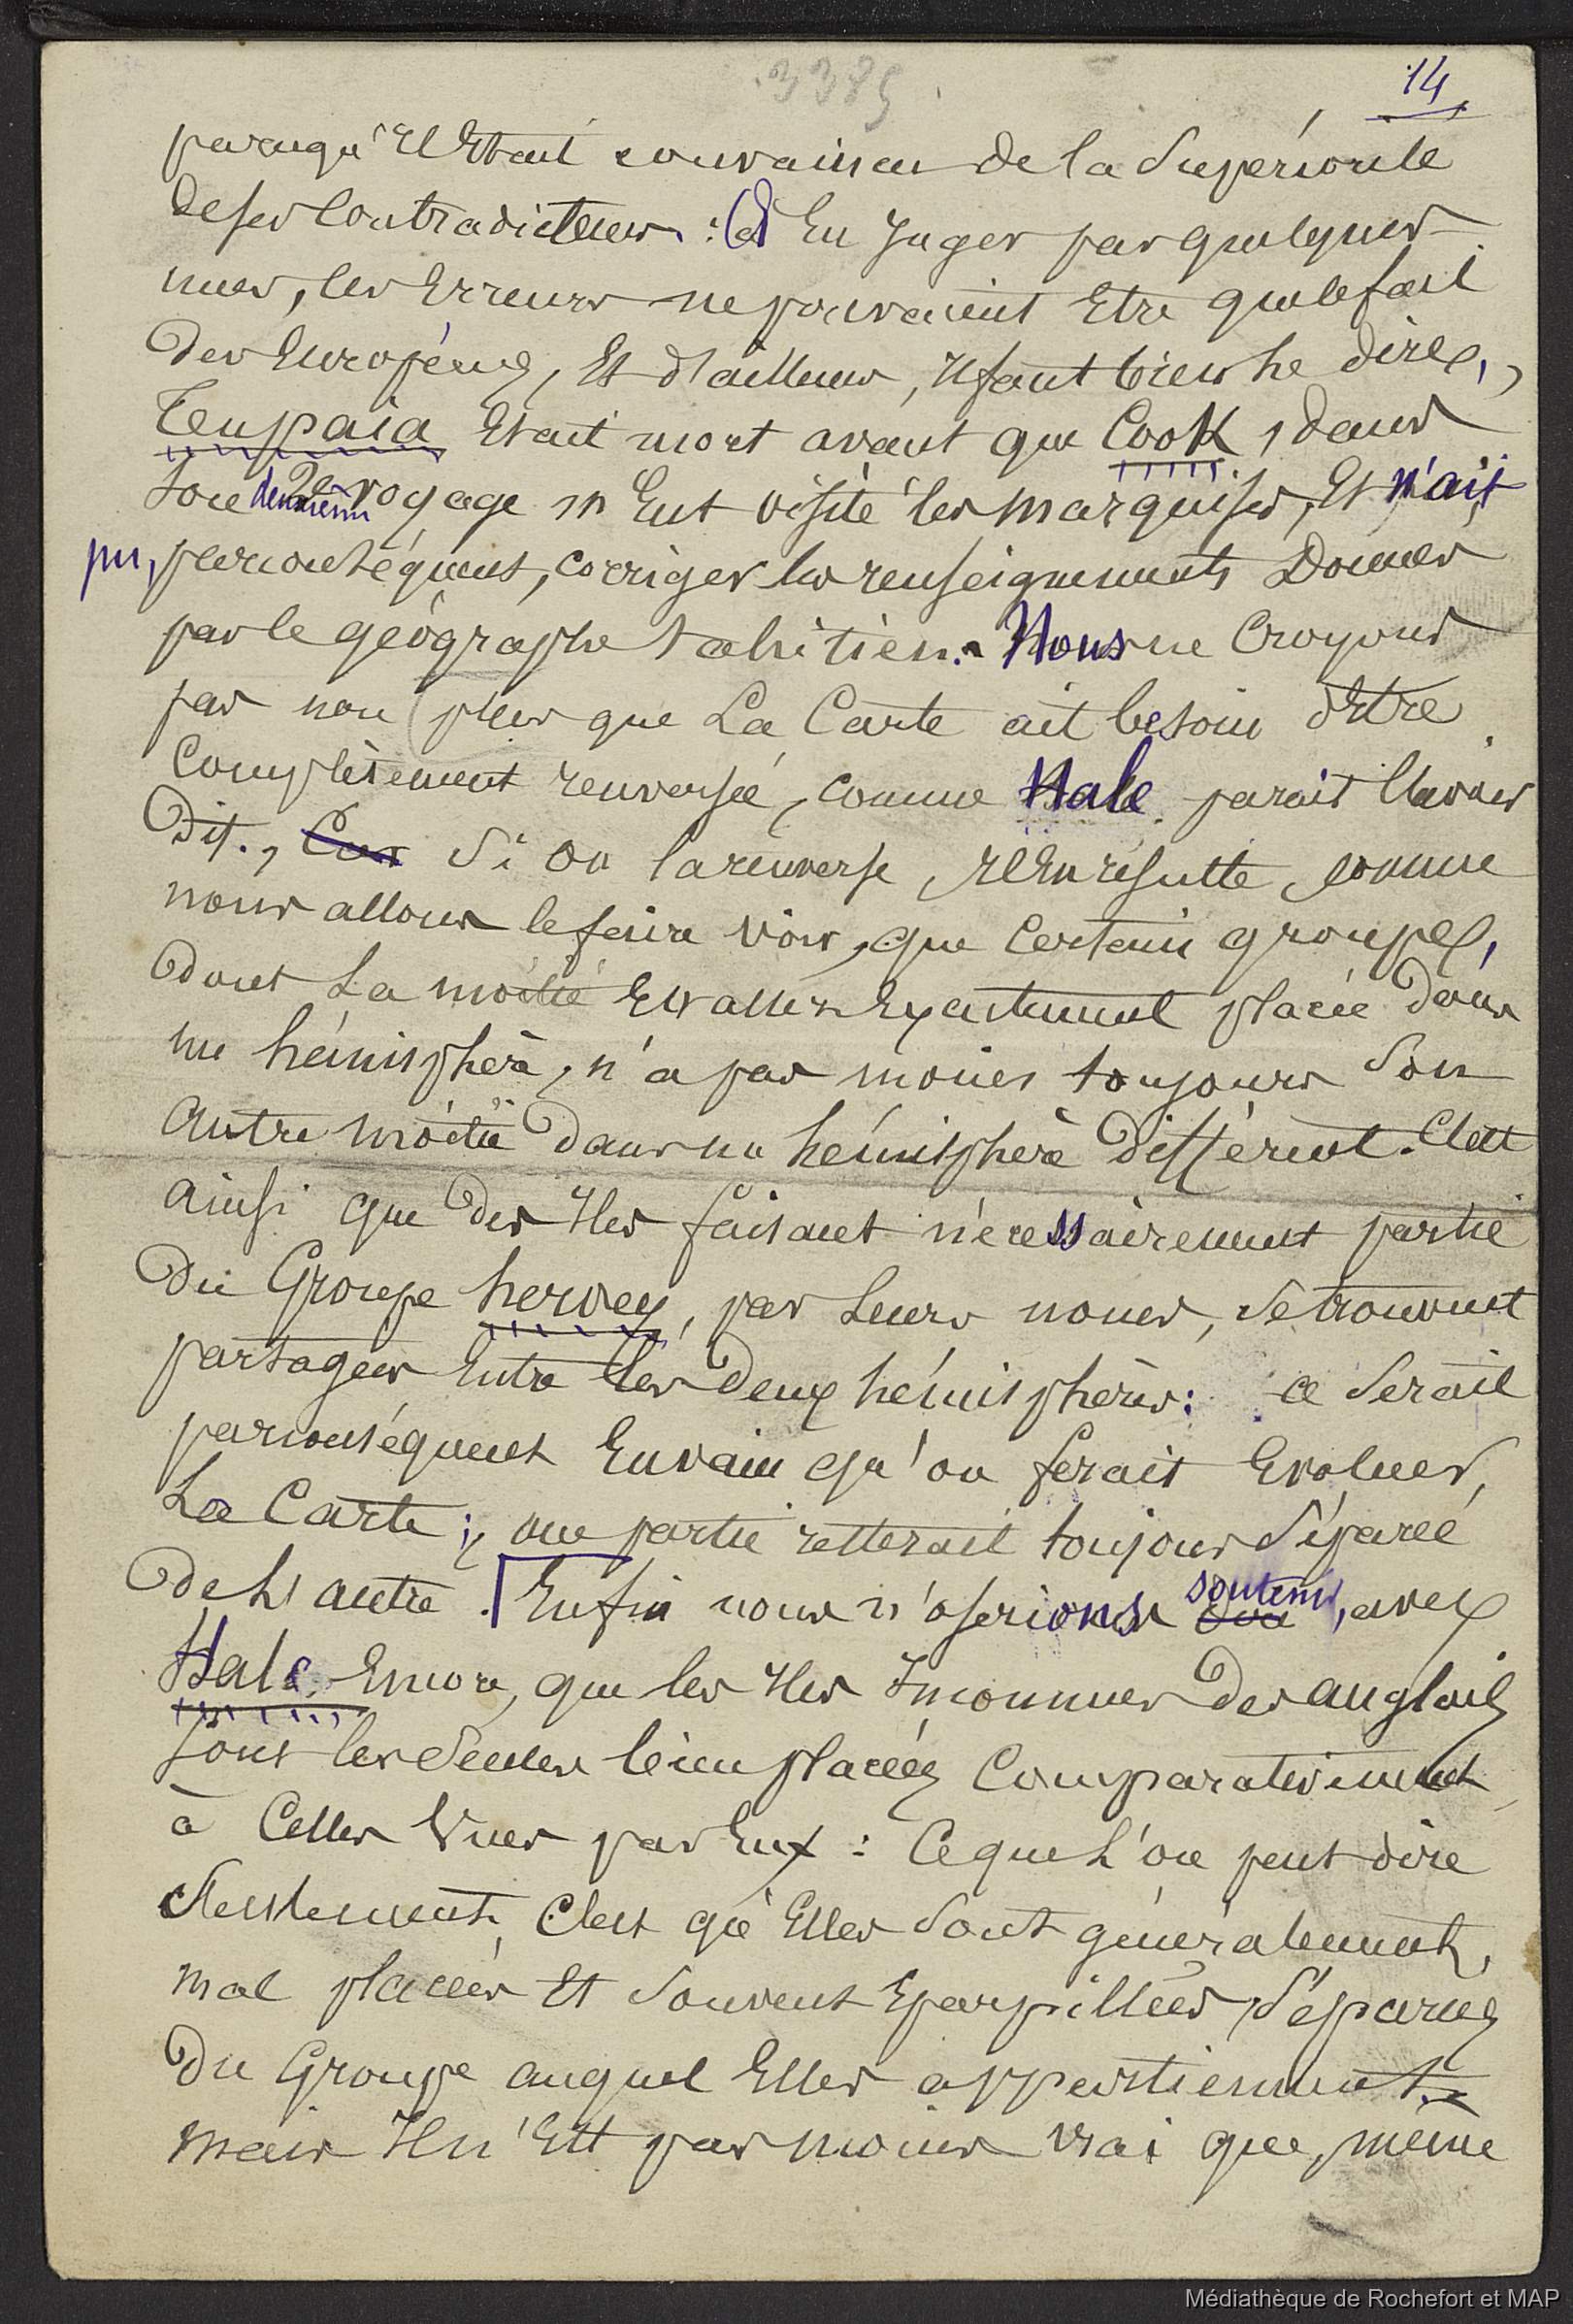 3385
14
parcequ'il Etait convaincu de la Supériorité
de ses Contradicteurs : à En Juger par quelques
unes, les Erreurs ne pouvaient Etre que le fait
des Européens, Et d'ailleurs, il faut bien le dire,
Teupaia Etait mort avant que Cook, dans
son deuxième voyage n'Eut visité les marquises, Et n'ait
pu, par conséquent, corriger les renseignements Donnés
par le géographe tahitien. Nous ne Croyons
pas non plus que La Carte ait besoin d'Etre
Complètement renversée, comme Hale parait l'avoir
Dit., Car Si on la renverse, il En résulte, comme
nous allons le faire voir, que Certain groupe,
dont La moitié Est assez Exactement placée dans
un hémisphère, n'a pas moins toujours Son
autre moitié dans un hémisphère Différent. C'est
ainsi que des Iles faisant nécessairement partie
Du Groupe hervey, par Leurs noms, Se trouvent
partagées Entre les Deux hémisphères : ce Serait
par conséquent En vain qu'on ferait Evoluer,
La Carte ; une partie resterait toujours Séparée
de L'autre. Enfin nous n'oserions soutenir, avec
Hale Encore, que les Iles Inconnues des anglais
Sont les Seules bien placées Comparativement
à Celles Vues par Eux : Ce que L'on peut dire
Seulement, C'est qu'Elles Sont généralement,
mal placées Et Souvent Eparpillées, Séparées
Du Groupe auquel Elles appartiennent.
mais Il n'Est pas moins vrai que, même
Médiathèque de Rochefort et MAP